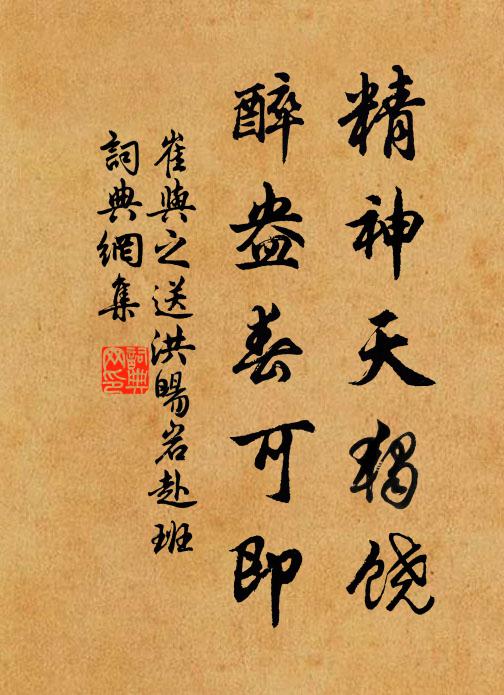 精神天独饶
醉盎春可即
崔與之送洪暘岩赴班
詞典網集
詞典网印